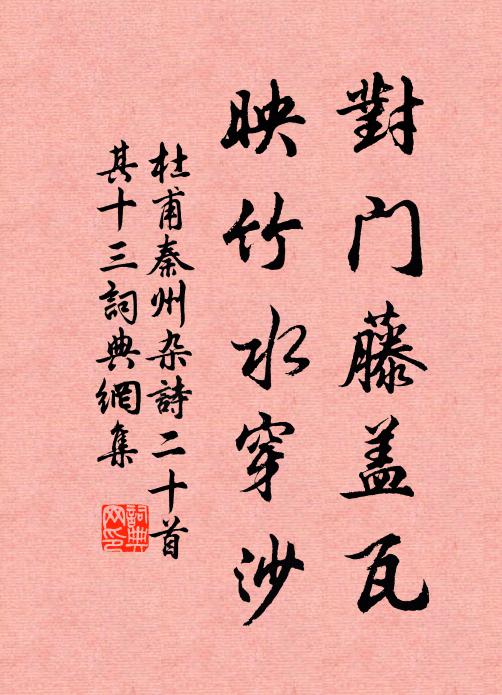 對门藤盖瓦
映竹水穿沙
杜甫秦州杂詩二十首
其十三詞典網集
詞典网印